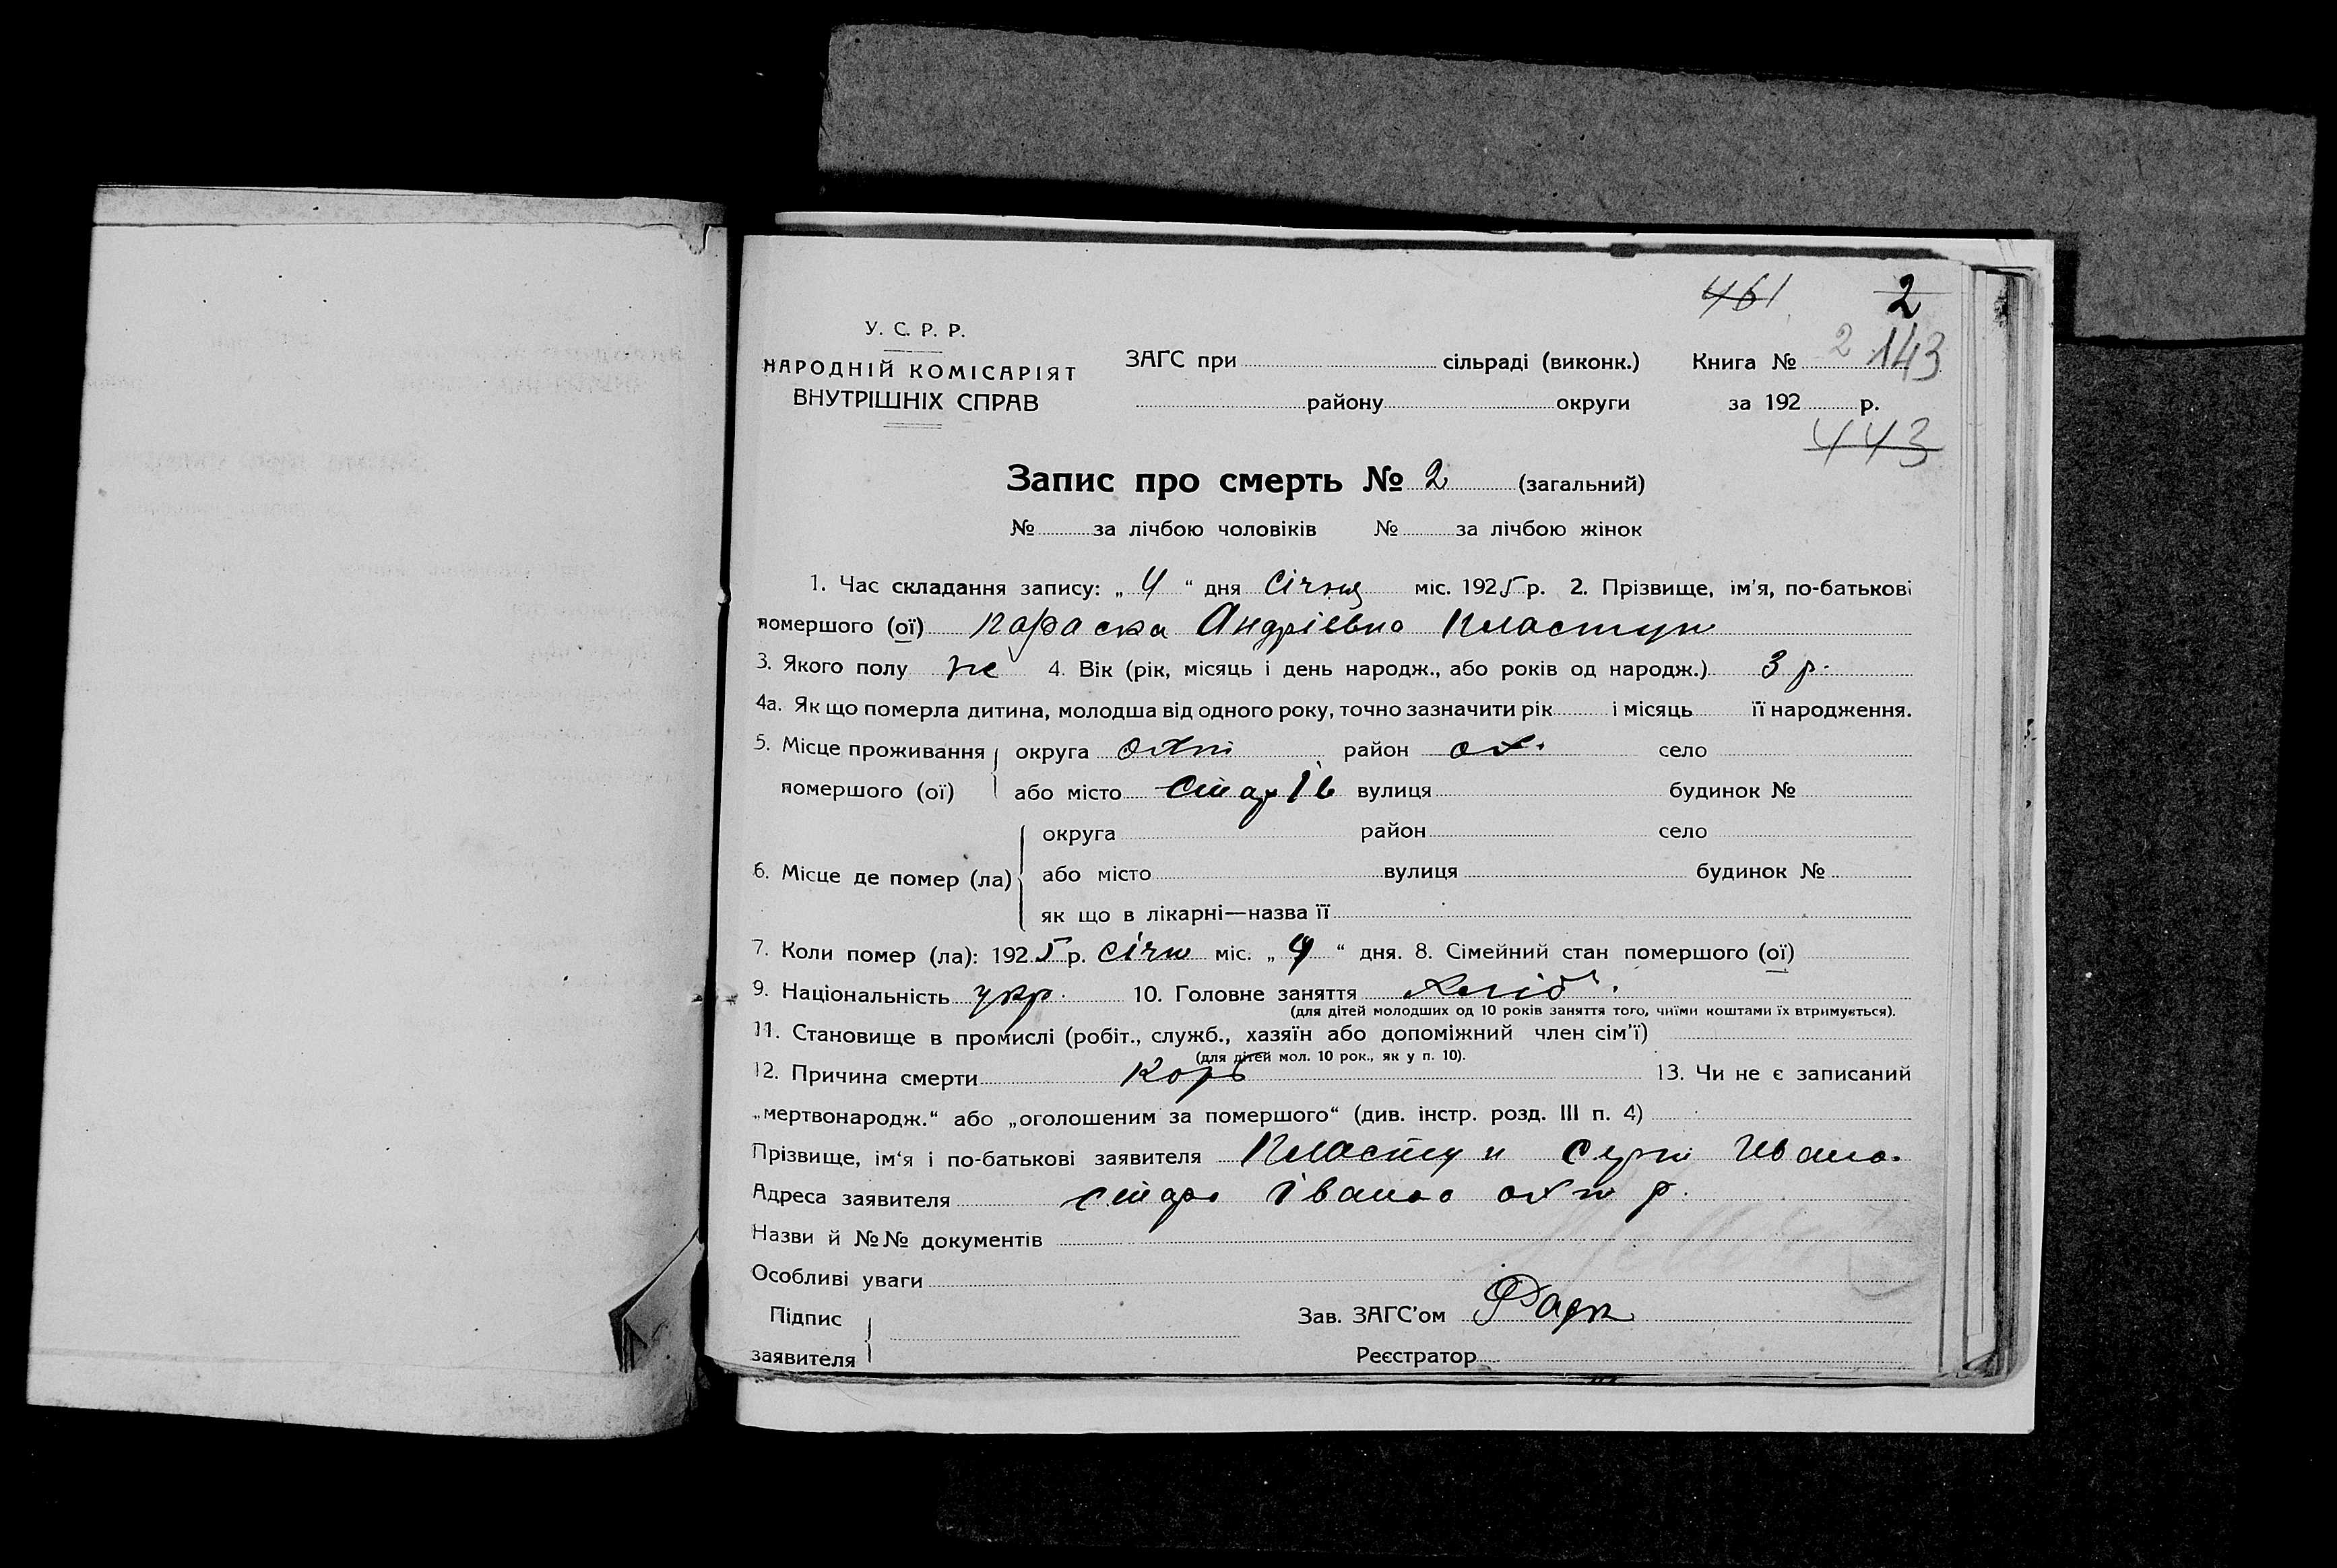 461 2
У. С. Р. Р.
НАРОДНІЙ КОМІСАРІЯТ
ВНУТРІШНІХ СПРАВ
ЗАГС при сільраді (виконк.) Книга № 2 143
району округи за 192 р.
443
Запис про смерть № 2 (загальний)
№ за лічбою чоловіків № за лічбою жінок
1. Час складання запису: „ 4 “ дня Січня міс. 1925 р. 2. Прізвище, ім'я, по-батькові
помершого (ої) Параска Андрієвна Пластун
3. Якого полу ж 4. Вік (рік, місяць і день народж., або років од народж.) 3 р.
4а. Як що померла дитина, молодша від одного року, точно зазначити рік і місяць її народження.
5. Місце проживання округа охт район ох. село
помершого (ої) або місто Стар Ів вулиця будинок №
округа район село
6. Місце де помер (ла) або місто вулиця будинок №
як що в лікарні—назва її
7. Коли помер (ла): 1925 р. січн міс. „ 4 “ дня. 8. Сімейний стан помершого (ої)
9. Національність укр. 10. Головне заняття хліб.
(для дітей молодших од 10 років заняття того, чиїми коштами їх втримується).
11. Становище в промислі (робіт., служб., хазяїн або допоміжний член сім'ї)
(для дітей мол. 10 рок., як у п. 10).
12. Причина смерти Корь 13. Чи не є записаний
„мертвонародж.“ або „оголошеним за помершого“ (див. інстр. розд. III п. 4)
Прізвище, ім'я і по-батькові заявителя Пластун Ивано.
Адреса заявителя старо Івано охт р.
Назви й №№ документів
Особливі уваги
Підпис
заявителя
Зав. ЗАГС'ом
Реєстратор